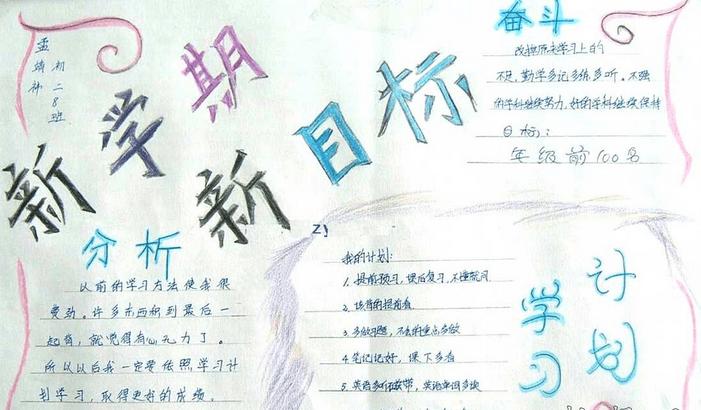 初二8班
孟婧神
新学期
新目标
奋斗
改掉历来学习上的
不足,勤学多记多练多听。不强
的学科继续努力,好的学科继续保持
目标:
年级前100名
分析
以前的学习方法使我很
受劲。许多东西积到最后一
起背,就觉得有心无力了。
所以以后我一定要依照学习计
划学习,取得更好的成绩。
我的计划:
1. 提前预习,课后复习,不懂就问
2. 该背的提前背
3. 多做习题,不会的重点多做
4. 笔记记好,课下多看
5. 英语多听磁带,英语单词多读
学习
计划